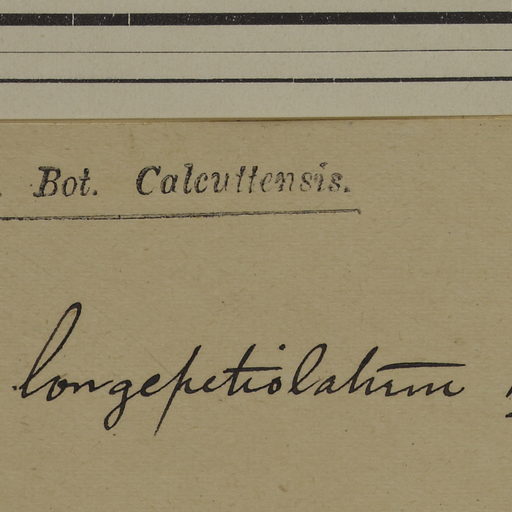 Bot. Calcuttensis.
longepetiolatum